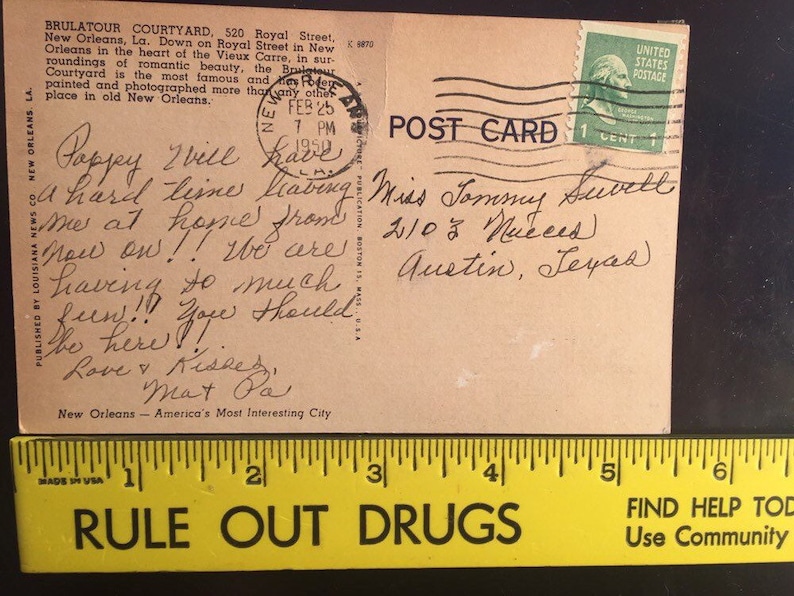 BRULATOUR COURTYARD, 520 Royal Street,
New Orleans, La. Down on Royal Street in New
Orleans in the heart of the Vieux Carre, in sur-
roundings of romantic beauty, the Brulatour
Courtyard is the most famous and has been
painted and photographed more than any other
place in old New Orleans.
K 8870
NEW ORLEANS
FEB 25
7 PM
1950
LA.
UNITED
STATES
POSTAGE
GEORGE
WASHINGTON
1 CENT 1
POST CARD
Poppy Will have
a hard time having
me at home from
now on!! We are
having so much
fun!! You should
be here!!
Love & Kisses,
Ma & Pa
Miss Tommy Sewell
2103 Nueces
Austin, Texas
PUBLISHED BY LOUISIANA NEWS CO NEW ORLEANS. LA.
PUBLICATION BOSTON 15, MASS., U.S.A
New Orleans — America's Most Interesting City
1 2 3 4 5 6
MADE IN USA
RULE OUT DRUGS
FIND HELP TOD
Use Community